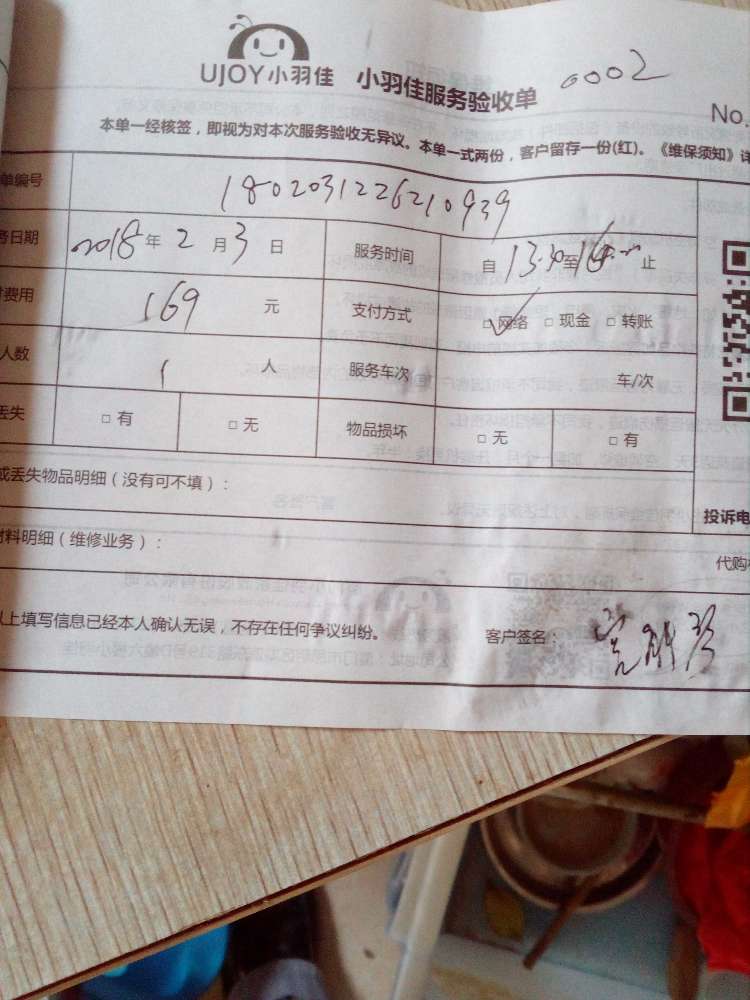 UJOY小羽佳 小羽佳服务验收单 0002
No.
本单一经核签，即视为对本次服务验收无异议。本单一式两份，客户留存一份(红)。《维保须知》详
单编号 1802031226210939
务日期 2018年2月3日 服务时间 自13:30至 止
费用 169 元 支付方式 □网络 □现金 □转账
人数 1 人 服务车次 车/次
丢失 □有 □无 物品损坏 □无 □有
或丢失物品明细（没有可不填）：
投诉电
材料明细（维修业务）：
代购
以上填写信息已经本人确认无误，不存在任何争议纠纷。 客户签名：